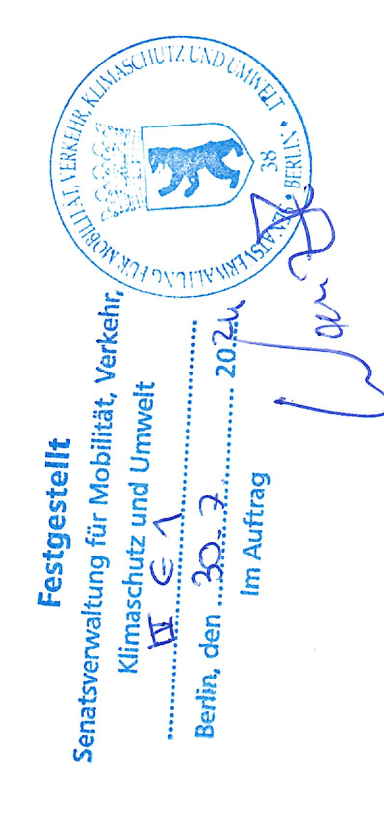 Festgestellt
Senatsverwaltung für Mobilität, Verkehr,
Klimaschutz und Umwelt
IV E 1
Berlin, den 30.7. 2024
Im Auftrag
SENATSVERWALTUNG FÜR MOBILITÄT, VERKEHR, KLIMASCHUTZ UND UMWELT • BERLIN •
38